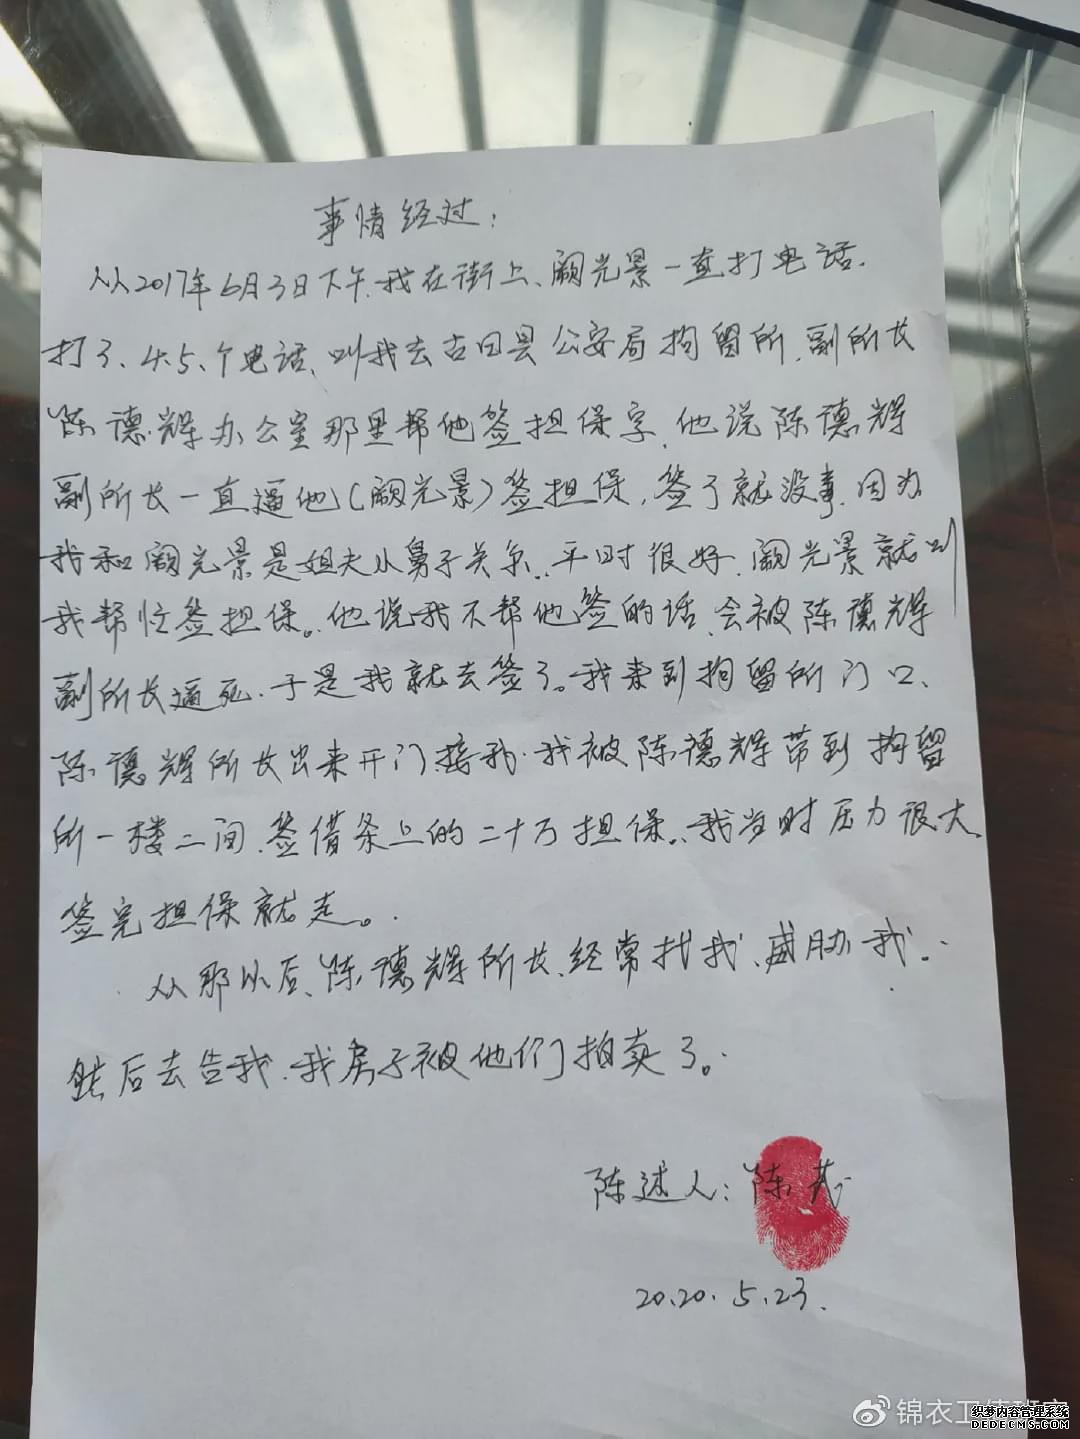 事情经过：
从2017年6月3日下午.我在街上、阙光景一直打电话.
打了、4.5、个电话、叫我去古田县公安局拘留所.副所长
陈德辉办公室那里帮他签担保字.他说陈德辉
副所长一直逼他(阙光景)签担保,签了就没事.因为
我和阙光景是姐夫小舅子关系..平时很好.阙光景就叫
我帮忙签担保。他说我不帮他签的话、会被陈德辉
副所长逼死.于是我就去签了。我来到拘留所门口、
陈德辉所长出来开门接我.我被陈德辉带到拘留
所一楼二间.签借条上的二十万担保..我当时压力很大.
签完担保就走。.
从那以后、陈德辉所长.经常找我、威胁我.
然后去告我.我房子被他们拍卖了。.
陈述人：陈
2020.5.23.
锦衣卫
织梦内容管理系统
DEDECMS.COM